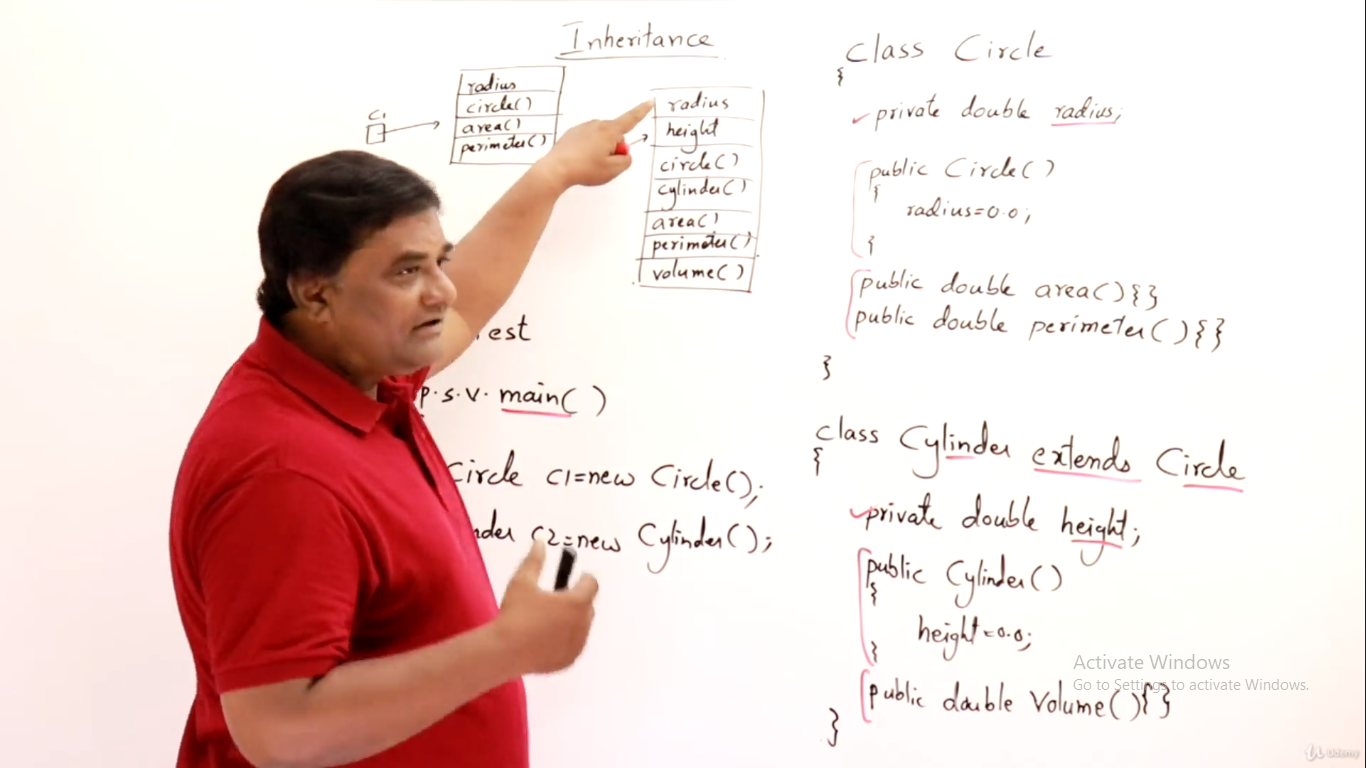 Inheritance
C1
radius
circle()
area()
perimeter()
radius
height
circle()
cylinder()
area()
perimeter()
volume()
est
p.s.v. main( )
Circle C1=new Circle();
nder C2=new Cylinder();
class Circle
{
private double radius;
public Circle()
{
radius=0.0;
}
public double area(){}
public double perimeter(){}
}
class Cylinder extends Circle
{
private double height;
public Cylinder()
{
height=0.0;
}
public double Volume(){}
}
Activate Windows
Go to Settings to activate Windows.
Udemy